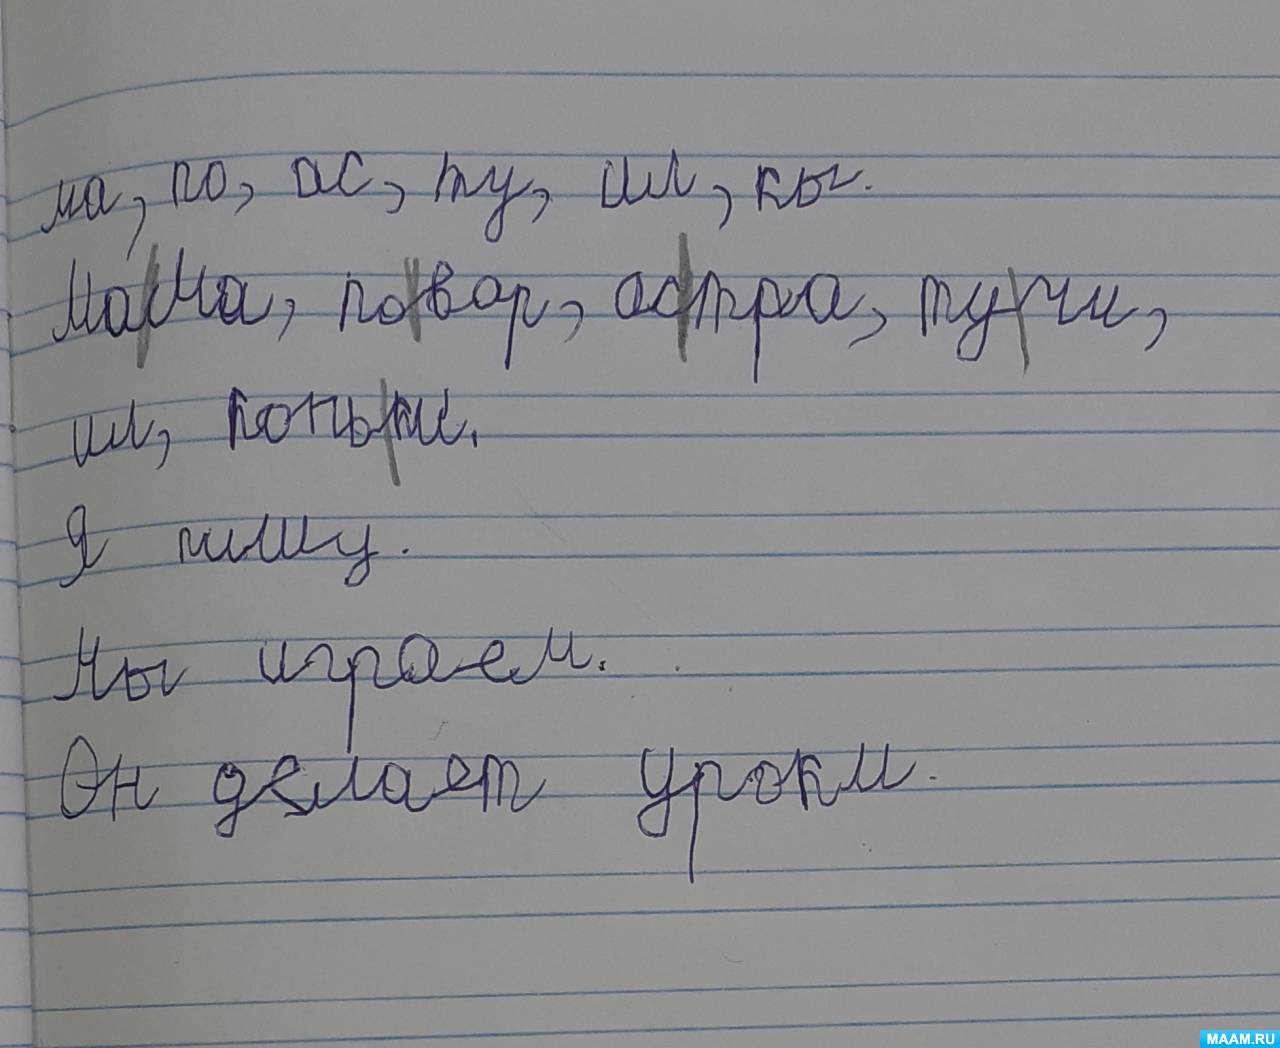 ма, по, ас, ту, им, кы.
Ма/Ма, по/вар, ас/тра, ту/чи,
им, конь/ки.
Я пишу.
Мы играем.
Он делает уроки.
MAAM.RU